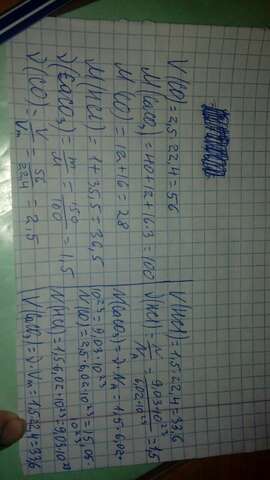 V(CO) = 2,5 · 22,4 = 56
M(CaCO₃) = 40+12+16·3 = 100
M(CO) = 12+16 = 28
M(HCl) = 1+35,5 = 36,5
ν(CaCO₃) = m/M = 150/100 = 1,5
ν(CO) = V/Vₘ = 56/22,4 = 2,5
V(HCl) = 1,5 · 22,4 = 33,6
ν(HCl) = N/Nₐ = 9,03·10²³/6,02·10²³ = 1,5
N(CaCO₃) = ν · Nₐ = 1,5 · 6,02 ·
10²³ = 9,03·10²³
N(CO) = 2,5 · 6,02·10²³ = 15,05 ·
10²³
N(HCl) = 1,5 · 6,02·10²³ = 9,03·10²³
V(CaCO₃) = ν · Vₘ = 1,5 · 22,4 = 33,6